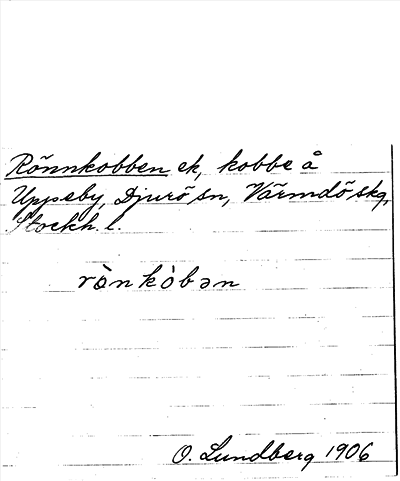 Rönnkobben ek, kobbe å
Uppeby, Djurö sn, Värmdö skg,
Stockh. l.
rὸnkὸbən
O. Lundberg 1906